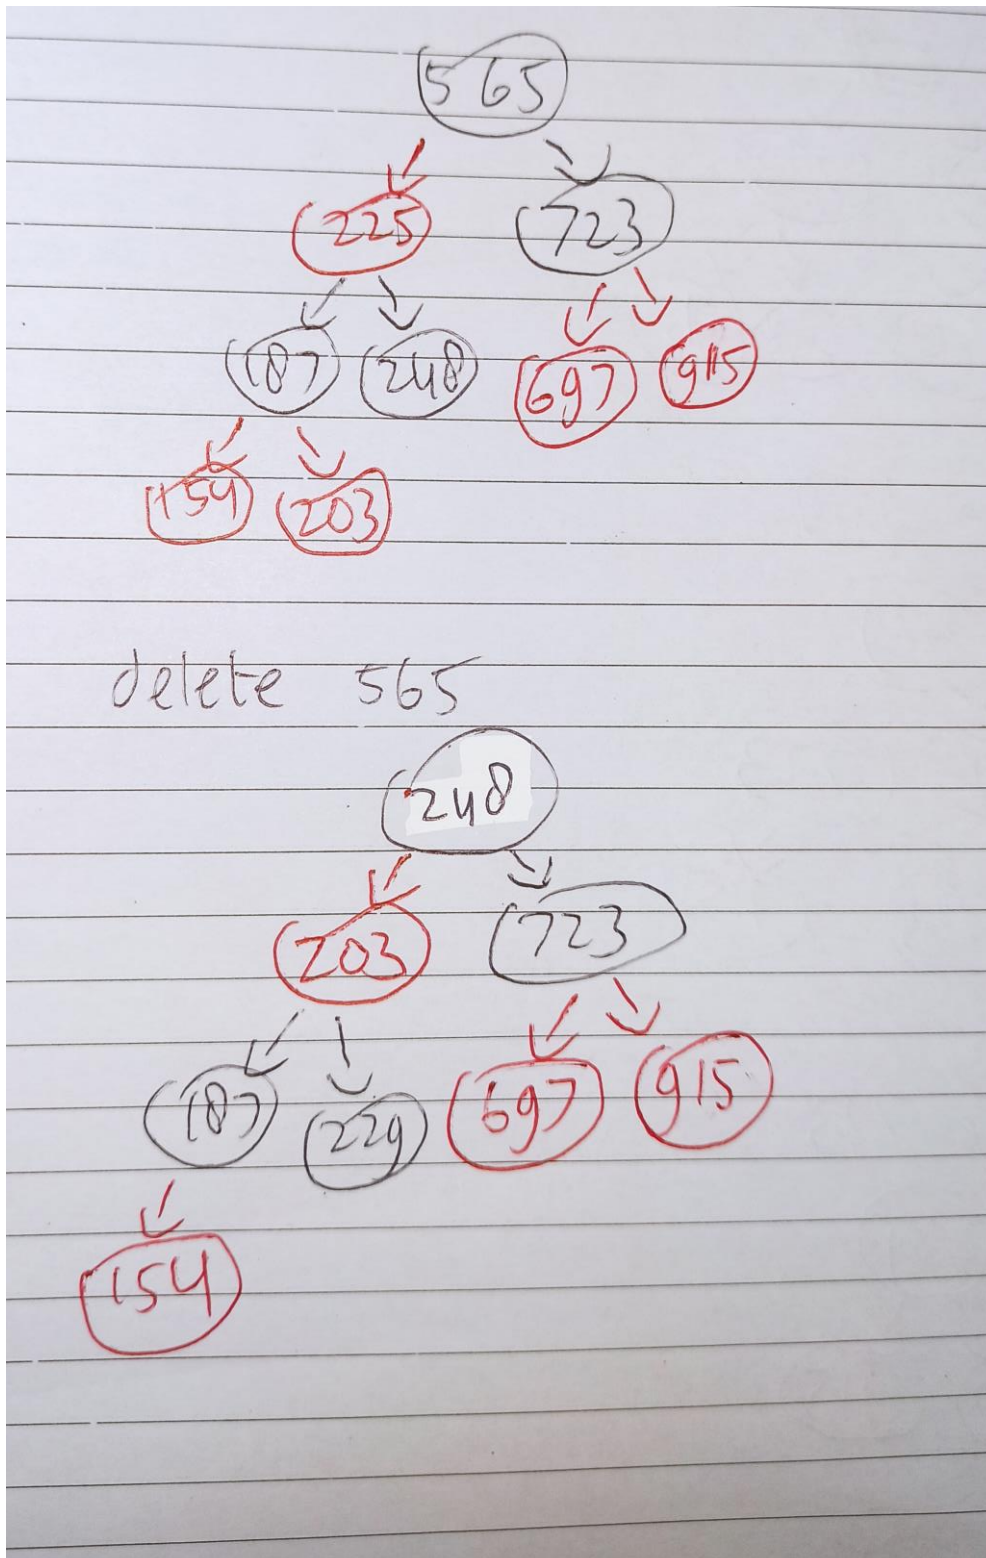 565
225 723
187 248 697 915
154 203
delete 565
248
203 723
187 229 697 915
154